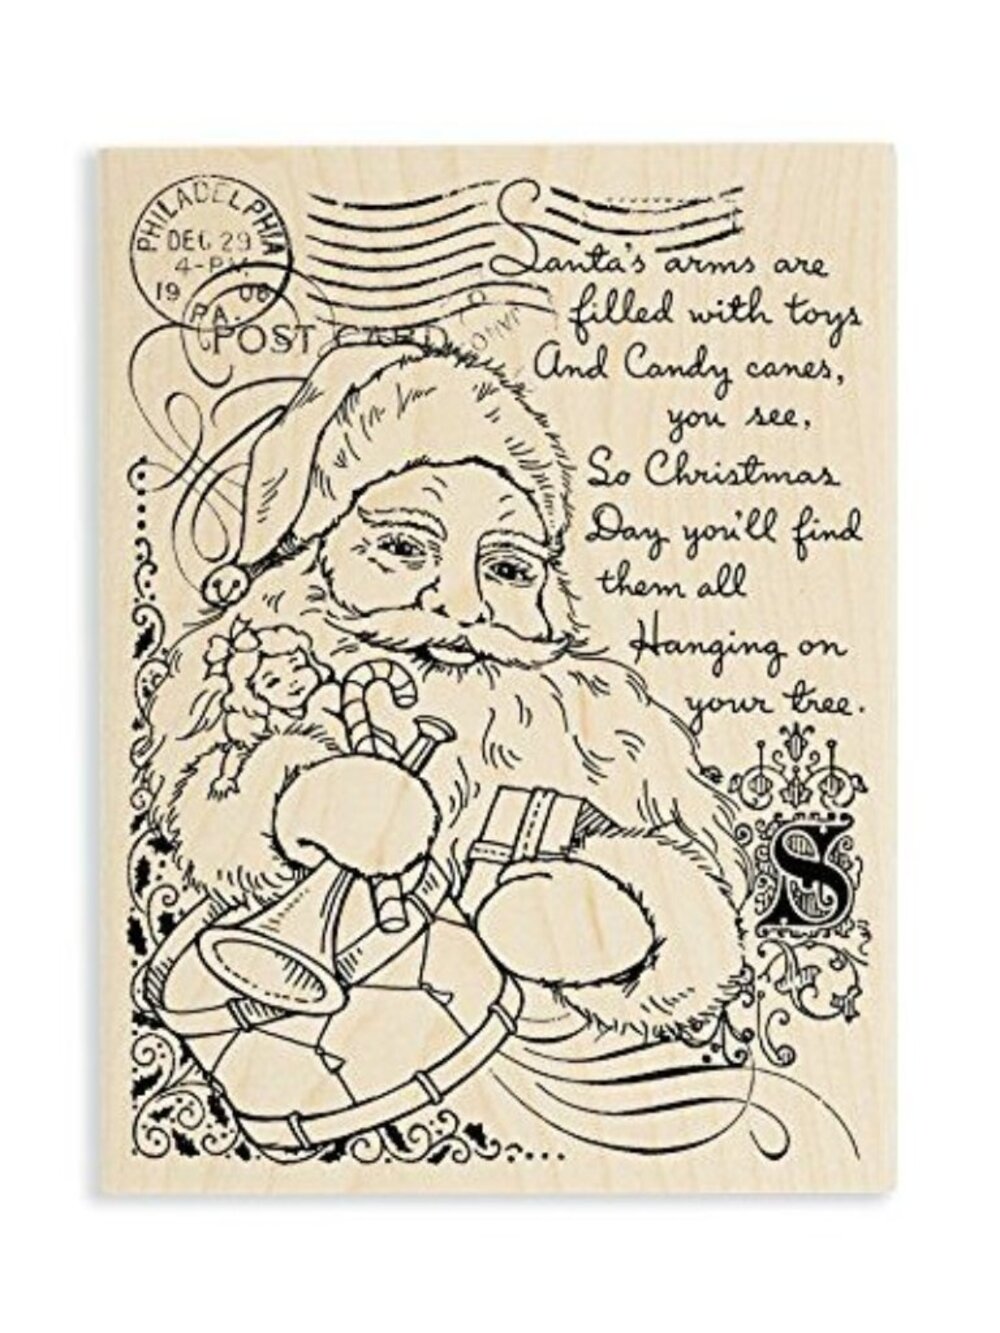 PHILADELPHIA
DEC 29
4-PM
19 08
PA.
POST CARD
Santa's arms are
filled with toys
And Candy canes,
you see,
So Christmas
Day you'll find
them all
Hanging on
your tree.
S